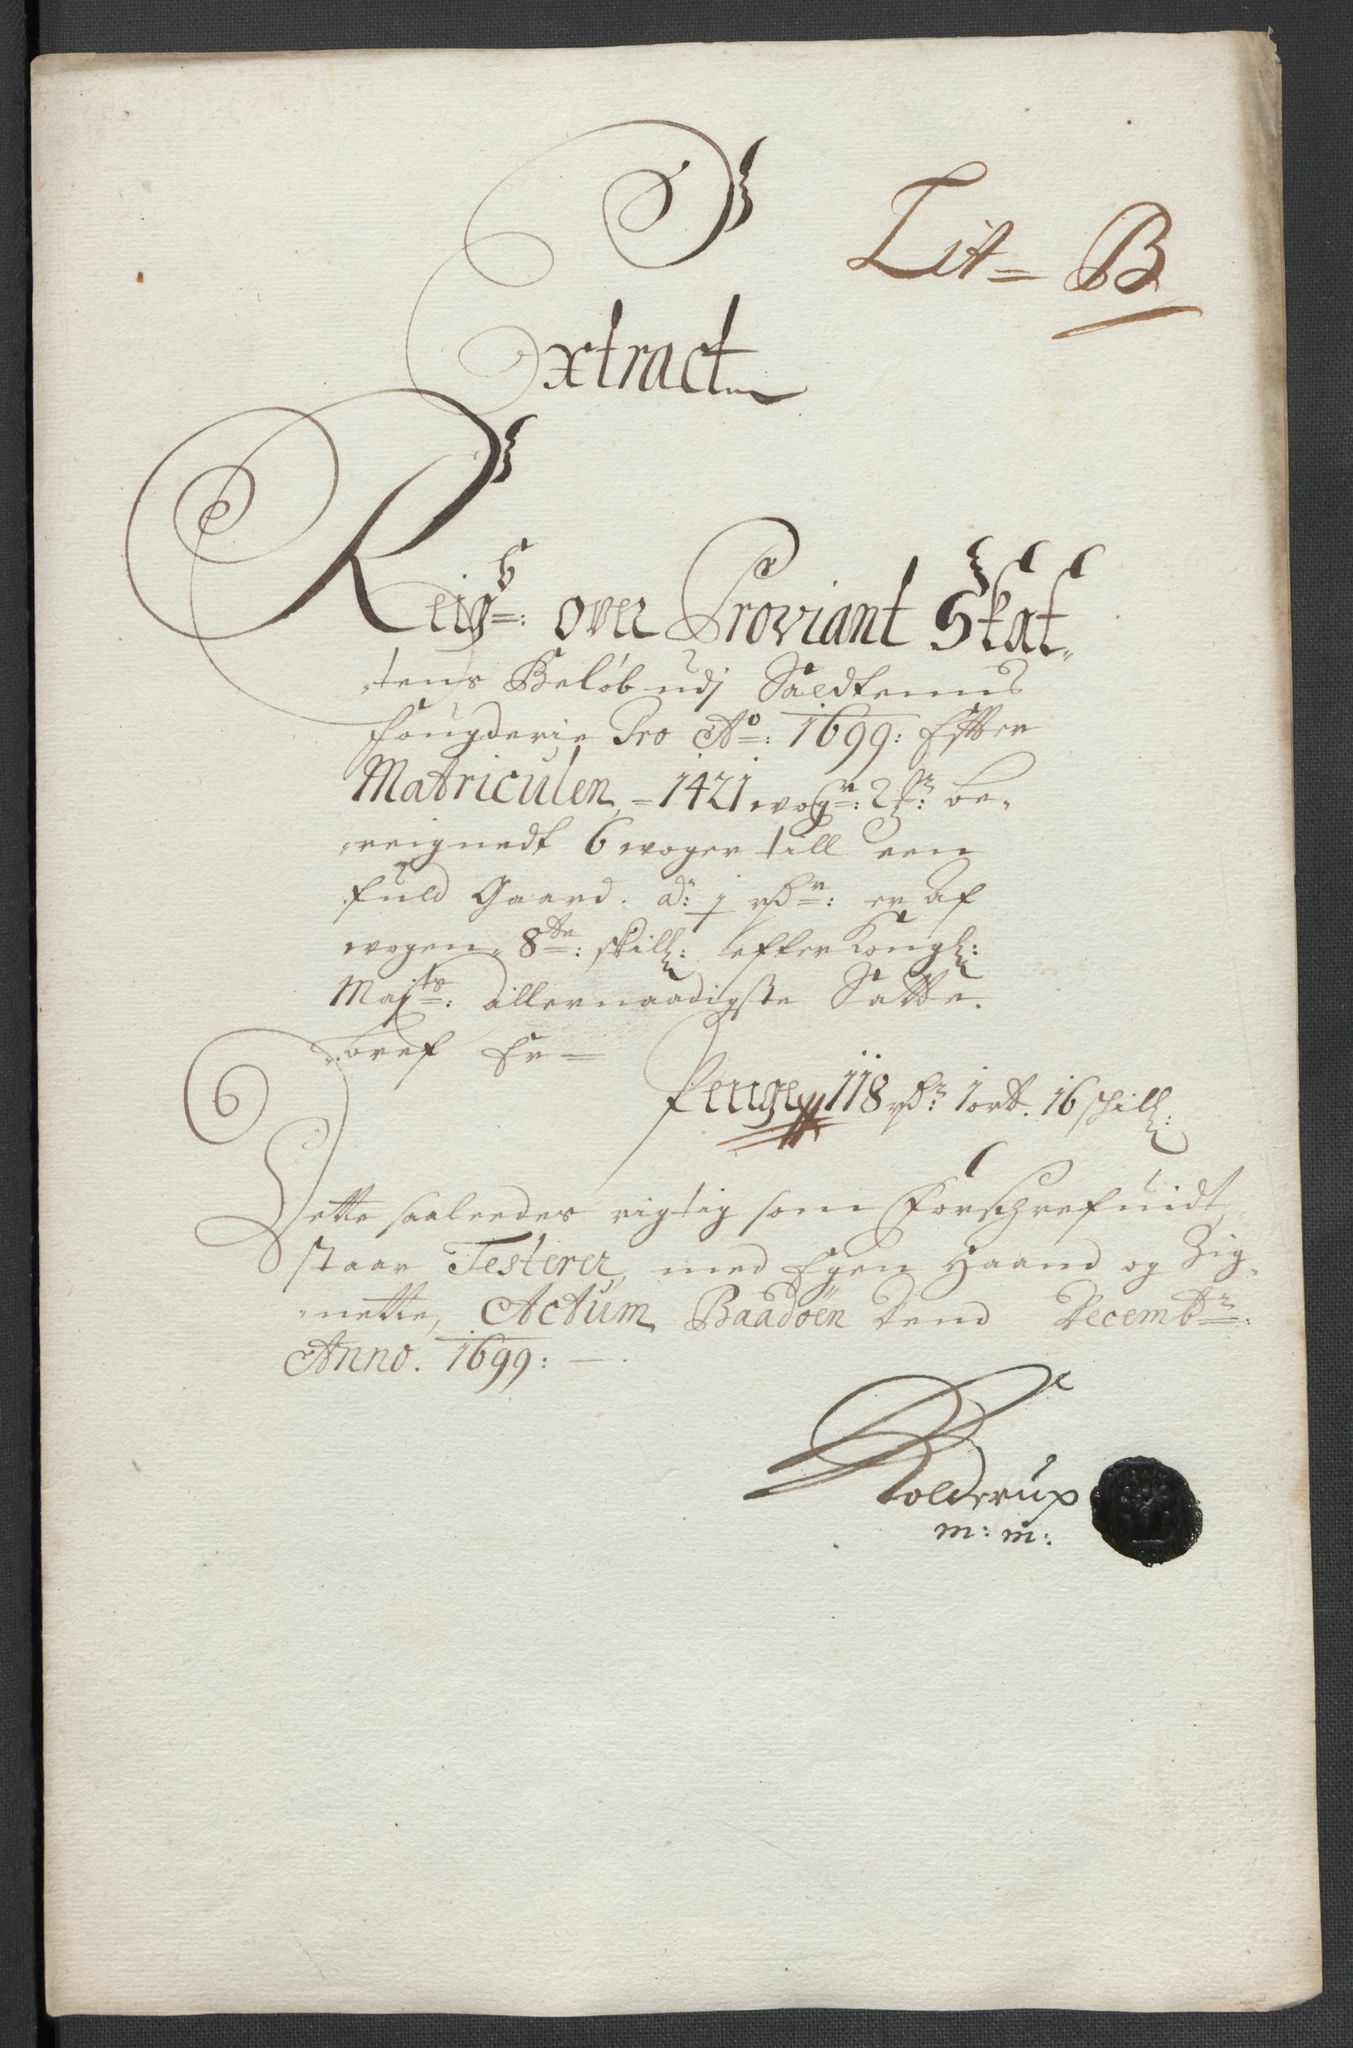 Lit= B
Extract
Reigs: over Proviant Skat,,
,,tens Beløb udj Saldtens
fougderie Pro Ao: 1699: Effter
Matriculen,= 1421 wogr: 2 be,,
,,reignedt 6 woger till een
fuld Gaard. a: j rdr: er af
wogen, 8te: skill: effter Kongl:
Majts: allernaadigste Satte.
Er=
Penge 118 rdr: 1 ort. 16 skill:
Dette saaleedes rigtig som Forschrefuidt,
staar Testerer, med Egen Haand og Zig,,
,,nette, Actum Baadøen Dend Decembr:
Anno. 1699: —.
Rolderup
m: m: